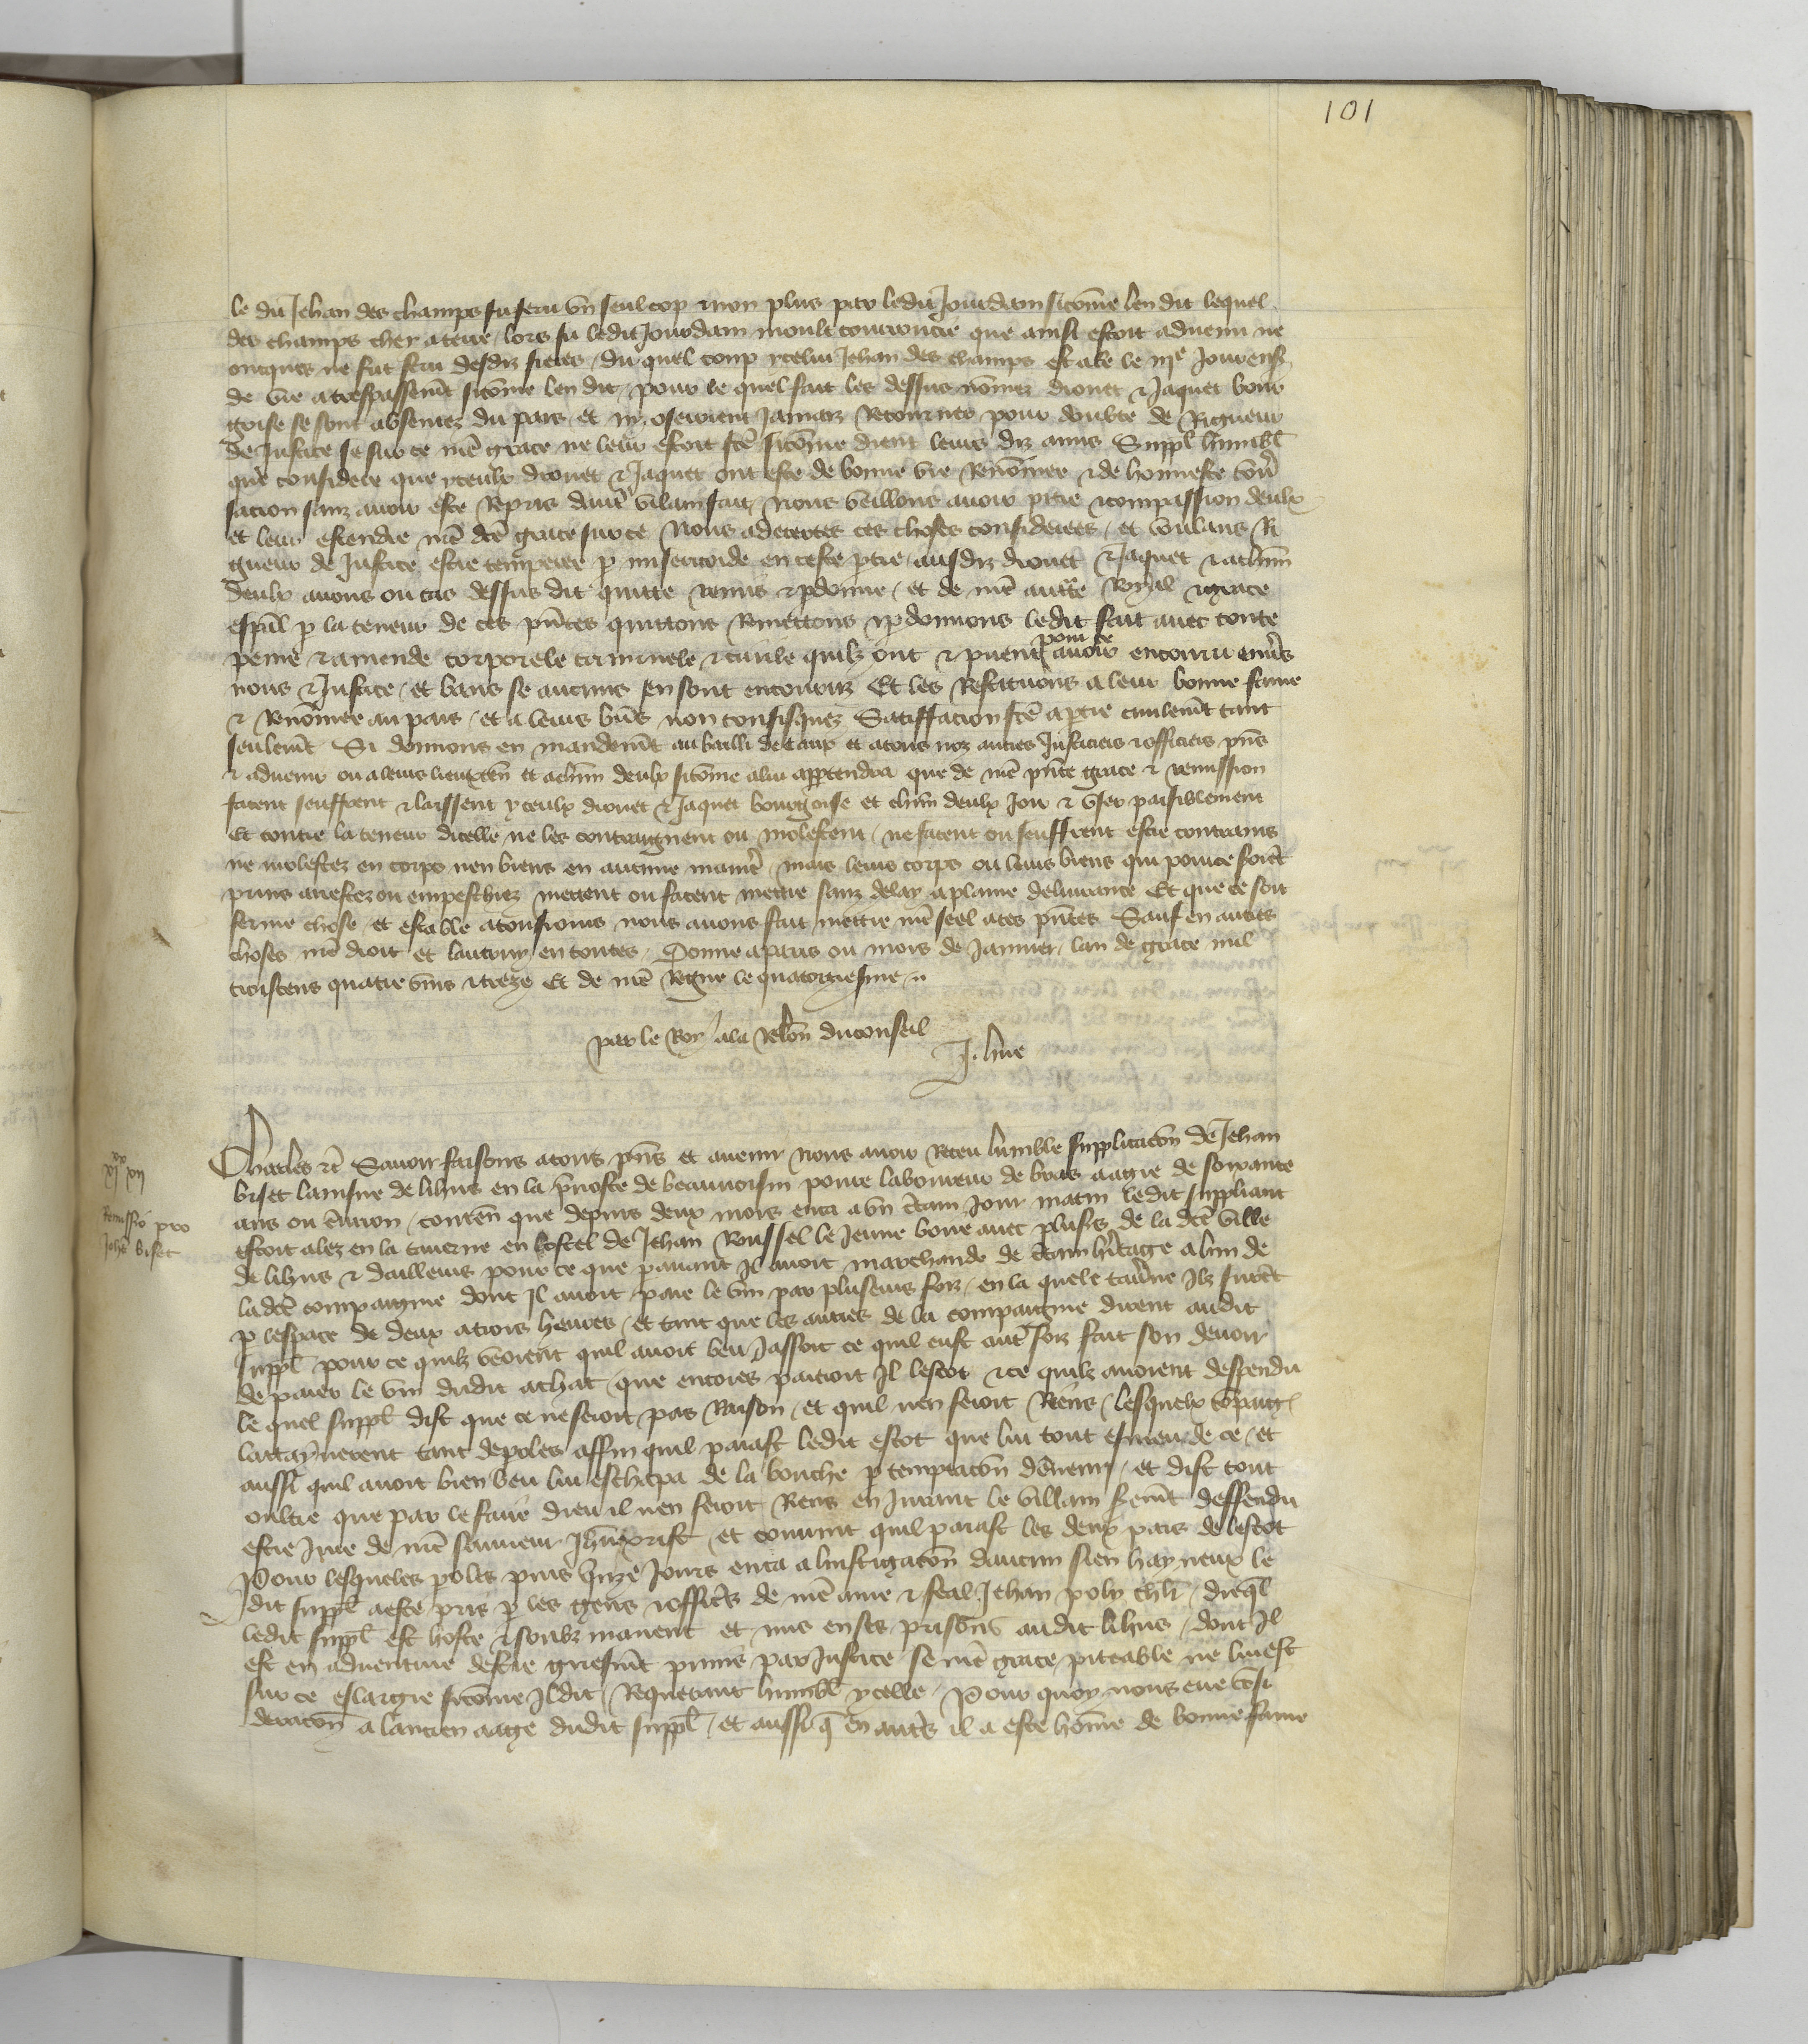 101
le dit Jehan des champs fu feru vn seul cop & non plus par ledit Jourdain sicōme len dit lequel
des champs chey a terre lors fu ledit Jourdain moult courroucie que ainsi estoit aduenu ne
onques ne fut feru desdiz freres / du quel coup ycelui Jehan des champs est ale le iije Jour ensꝰ
de vie a trespassemēt sicōme len dit / pour le quel fait les dessus nōmez drouet & Jaquet bour
goise se sont absentez du pais et ny oseroient Jamaiz Retourner pour doubte de Rigueur
de Justice se sur ce nrē grace ne leur estoit fcē sicōme dient leurs diz amis Suppl humbl
que considere que yceulx drouet & Jaquet ont este de bonne vie Renōmee & de honneste conṽ
sacion sanz auoir este Repris daut̄ vilain fait / Nous vueillons auoir pitie & compassion deulx
et leur estendre nrē dcē grace sur ce Nous adecertes ces choses considerees / et voulans Ri
gueur de Justice estre temperee p̱ misericorde en ceste p̱tie / ausdiz drouet & Jaquet & a chūn
deulx auons ou cas dessus dit quitte remis & p̱donne / et de nrē auctte Royal & grace
espāl p̱ la teneur de ces pn̄tes quittons Remettons & p̱donnons ledit fait auec toute
peine & amende corporele criminele & ciuile quilz ont & pueent pour ce auoir encouru enũs
nous & Justice / et bans se aucuns sen sont encouruz Et les Restituons a leur bonne fame
& Renōmee au pais / et a leurs biēs non confisquez Satiffacion fcē a p̱tie ciuilemēt tant
seulemēt Si donnons en mandemēt au bailli de caux et a tous noz autres Justiciers & officiers pn̄s
& aduenir ou a leurs lieuxten̄ et a chūn deulx sicōme a lui app̱tendra que de nrē pn̄te grace & remission
facent seuffrent & laissent yceulx drouet & Jaquet bourgoise et chūn deulx Joir & vser paisiblement
Et contre la teneur dicelle ne les contraignent ou molestent / ne facent ou seuffrent estre contrains
ne molestez en corps nen biens en aucune manie᷑ / mais leurs corps ou leurs biens qui pource soiēt
prins arrestez ou empeschiez mettent ou facent mettre sanz delay a plaine deliurance Et que ce soit
ferme chose et estable a tousiours nous auons fait mettre nrē seel a ces pn̄tes Sauf en autres
choses nrē droit et lautruy en toutes / Donne a paris ou mois de Januier / lan de grace mil
troiscens quatre vins & treze Et de nrē Regne le quatorziesme ..
par le Roy a la Relōn du conseil
J. hue
xjxx vij
Remissio pro
Johē biset
Charles &c̄ Sauoir faisons a tous pn̄s et auenir nous auoir Receu lumble supplicacōn de Jehan
biset lainsne de lihus en la ṗuoste de beauuoisin poure laboureur de bras aagie de soixante
ans ou enuiron / contēn que depuis deux mois enca a vn c̄tain Jour matin ledit suppliant
estoit alez en la tauerne en lostel de Jehan Roussel le Jeune boire auec plusrs de la dcē ville
de lihus & dailleurs pour ce que p̱auant Il auoit marchande de c̄tain h̄itage a lun de
la dcē compaignie dont Il auoit paie le vin par plusieurs foiz / en la quele tau̇ne Ilz furēt
p̱ lespace de deux a trois heures / et tant que les autres de la compaignie dirent audit
suppl pour ce quilz veoient quil auoit beu Jassoit ce quil eust aut̄ foiz fait son deuoir
de paier le vin dudit achat / que encores paieroit Il lescot & ce quilz auoient despendu
le quel suppl dist que ce ne seroit pas Raison / et quil nen feroit Riens / lesquelx cōpaig
lattaȳnerent tant de poles affin quil paiast ledit escot que lui tout esmeu de ce / et
aussi quil auoit bien beu lui eschapa de la bouche p̱ temptacōn dēnemy / et dist tout
oultre que par le dieu il nen feroit Riens en Jurant le villain serem̄t deffendu
estre Jure de nrē sauueur Jhūxrist / et conuint quil paiast les deux pars de lescot
Pour lesqueles poles puis quinze Jours enca a linstigacōn daucun sien hayneux le
dit suppl a este pris p̱ les gens & offic̄s de nrē ame & feal Jehan poly chlr / du q̄l
ledit suppl est hoste & soubz manent et mis en ses prisons audit lihus / dont Il
est en aduenture destre griefmēt punis par Justice se nrē grace piteable ne lui est
sur ce eslargie sicōme Il dit / Requerant humbl ycelle / Pour quoy nous eue cōsi
deracōn a lancien aage dudit suppl / et aussi q̄ en aut̄s il a este hōme de bonne fame